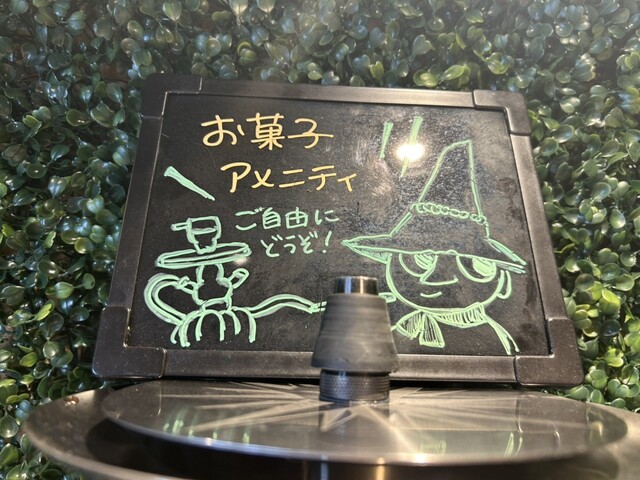 お菓子
アメニティ
ご自由に
どうぞ!